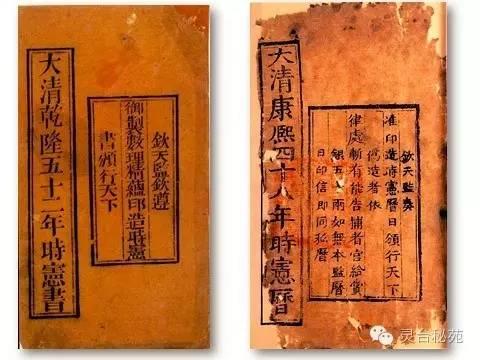 大清乾隆五十二年時憲書
欽天監欽遵
御製數理精蘊印造時憲
書頒行天下
大清康熙四十八年時憲曆
欽天監奏
准印造時憲曆日頒行天下
偽造者依
律處斬有能告捕者官給賞
銀五十兩如無本監曆
日印信即同私曆
灵台秘苑